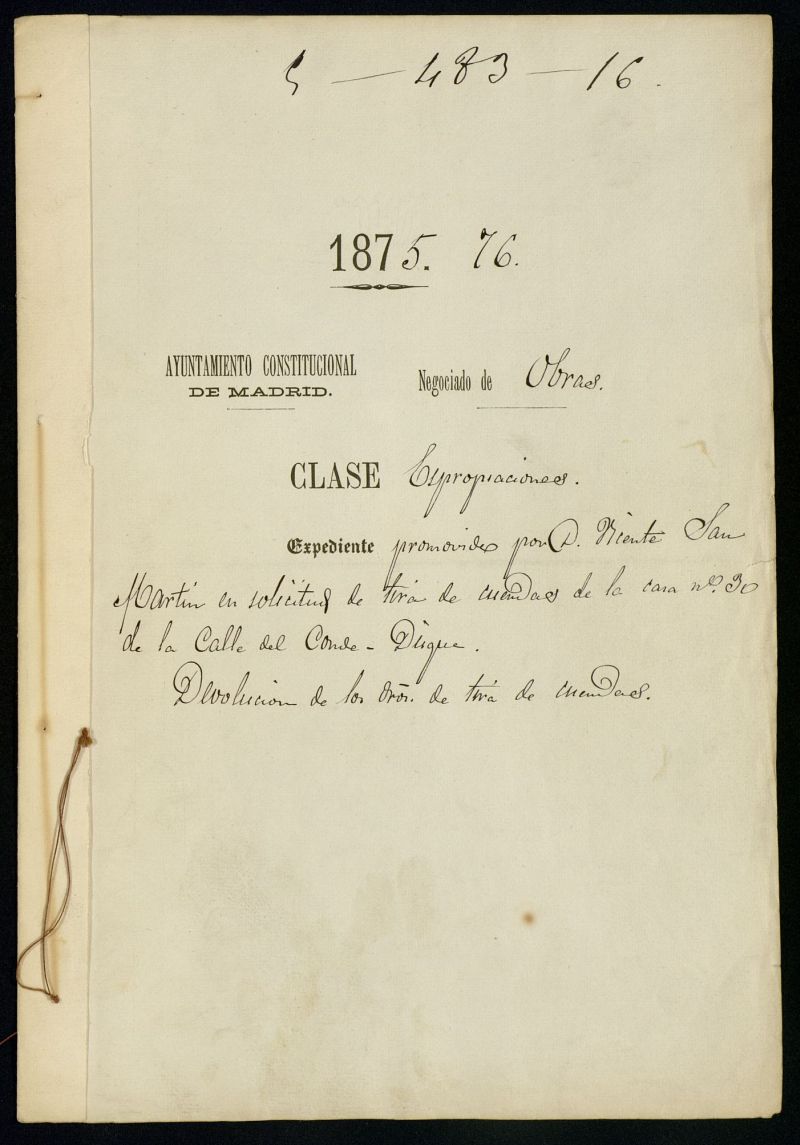 5 — 483 — 16.
1875. 76.
AYUNTAMIENTO CONSTITUCIONAL
DE MADRID.
Negociado de Obras.
CLASE Espropiaciones.
Expediente promovido por D. Vicente San
Martin en solicitud de tira de cuerdas de la casa nº. 30
de la Calle del Conde-Duque.
Devolucion de los dros. de tira de cuerdas.